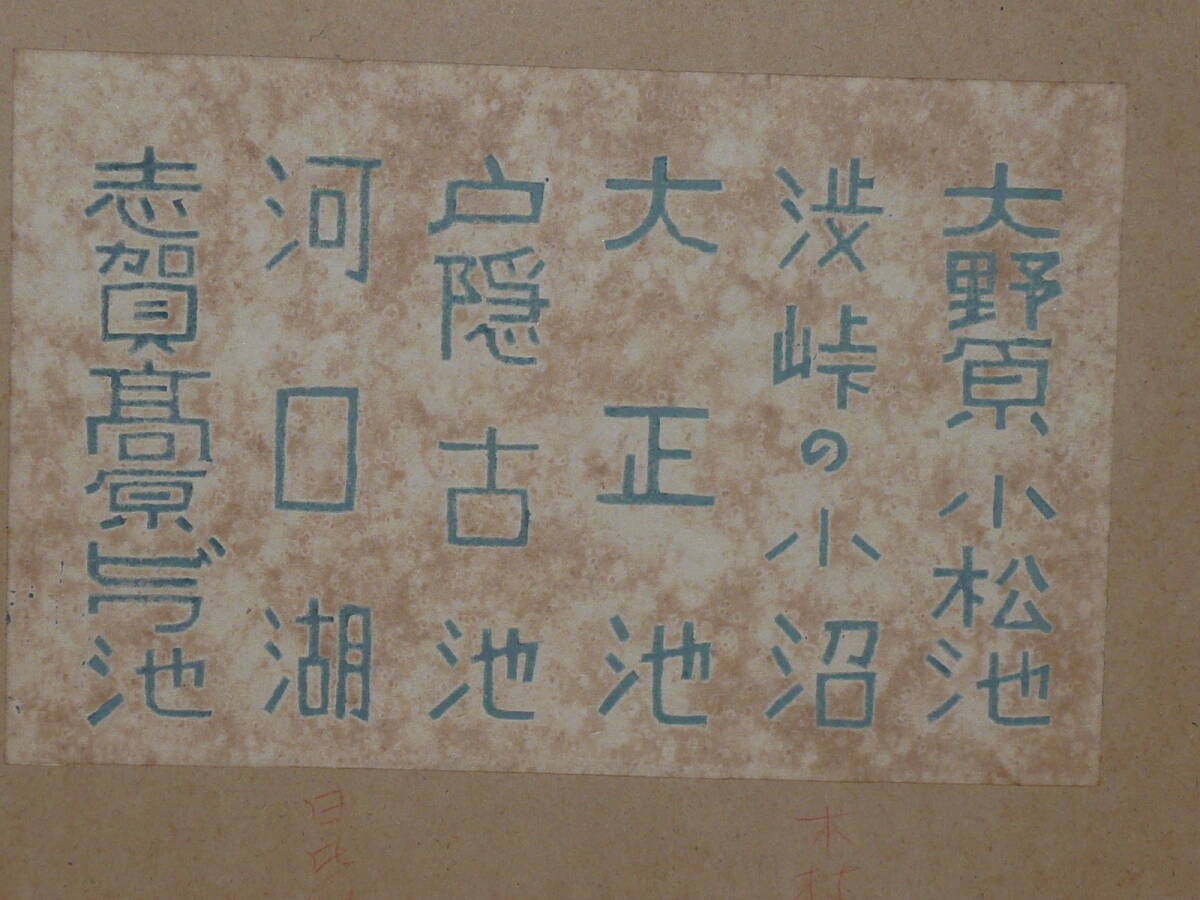 大野原小松池
渋峠の小沼
大正池
戸隠古池
河口湖
志賀髙原ビワ池